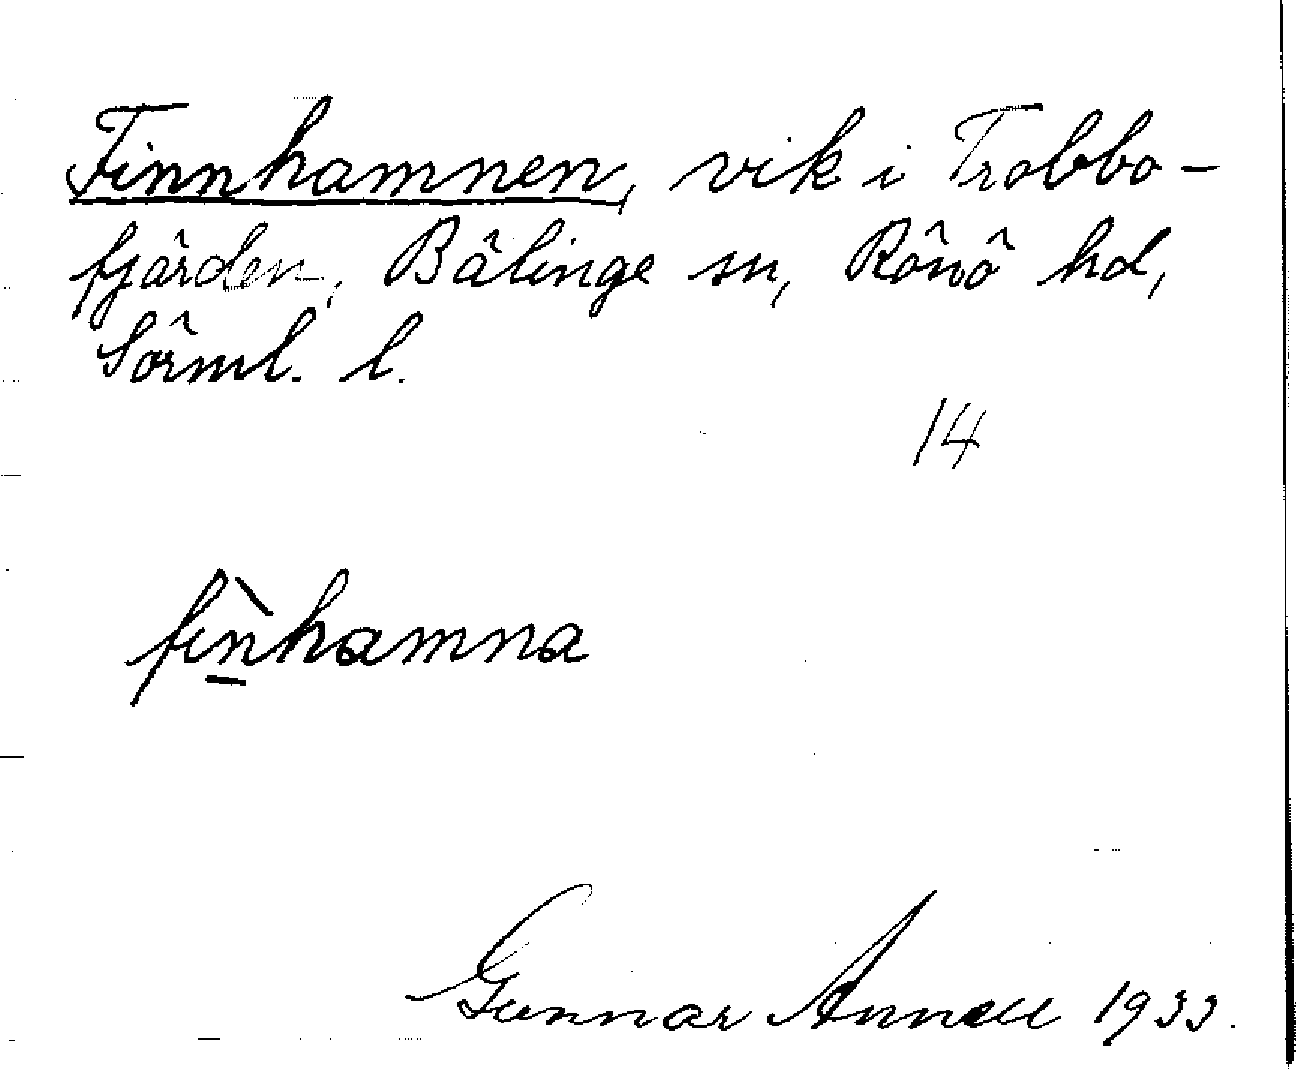 Finnhamnen, vik i Trobbo-
fjärden, Bälinge sn, Rönö hd,
Sörml. l.
14
fìn̲hamna
Gunnar Annell 1933.